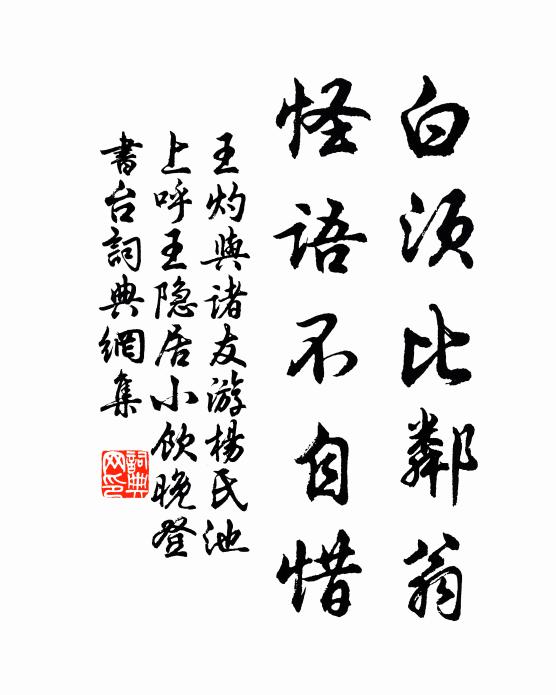 白须比鄰翁
怪語不自惜
王灼與諸友游楊氏池
上呼王隐居小飲晚登
書台詞典網集
詞典網印